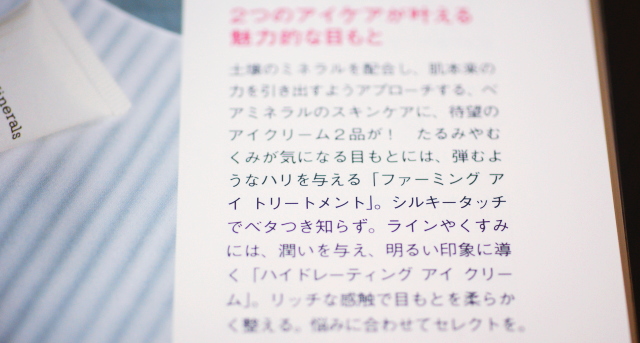 2つのアイケアが叶える
魅力的な目もと
土壌のミネラルを配合し、肌本来の
力を引き出すようアプローチする、ベ
アミネラルのスキンケアに、待望の
アイクリーム2品が！　たるみやむ
くみが気になる目もとには、弾むよ
うなハリを与える「ファーミング ア
イ トリートメント」。シルキータッチ
でベタつき知らず。ラインやくすみ
には、潤いを与え、明るい印象に導
く「ハイドレーティング アイ クリー
ム」。リッチな感触で目もとを柔らか
く整える。悩みに合わせてセレクトを。